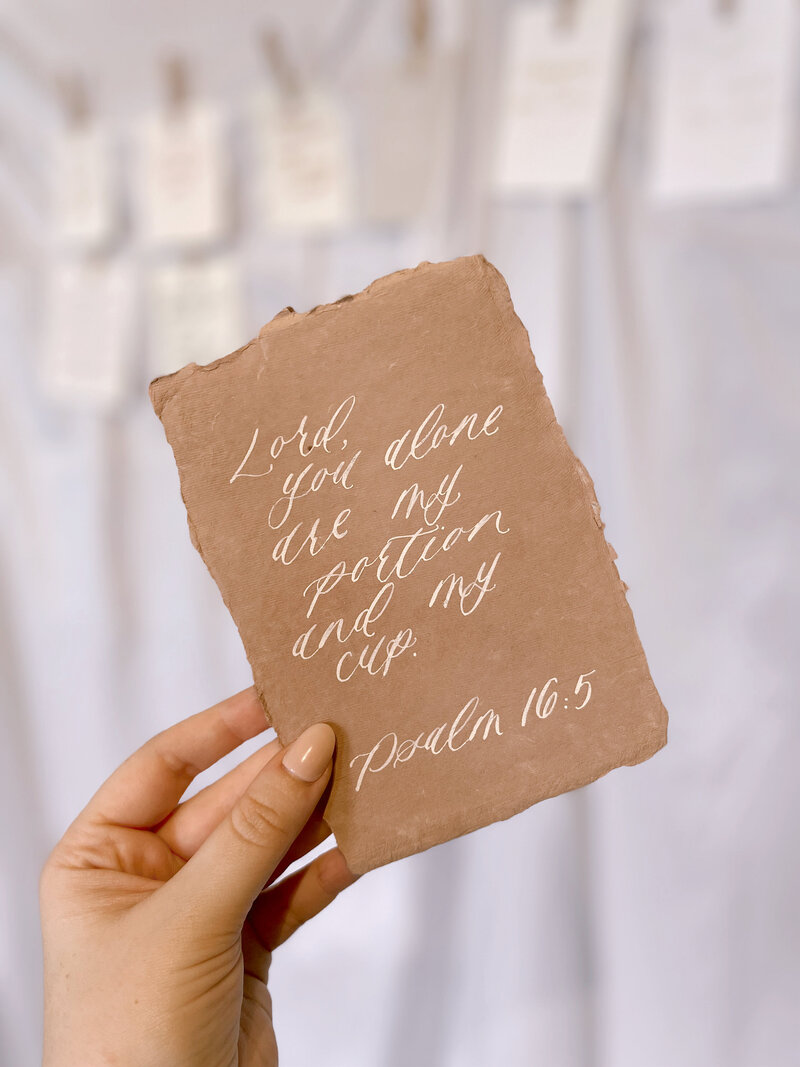 Lord,
you alone
are my
portion
and my
cup.
Psalm 16:5